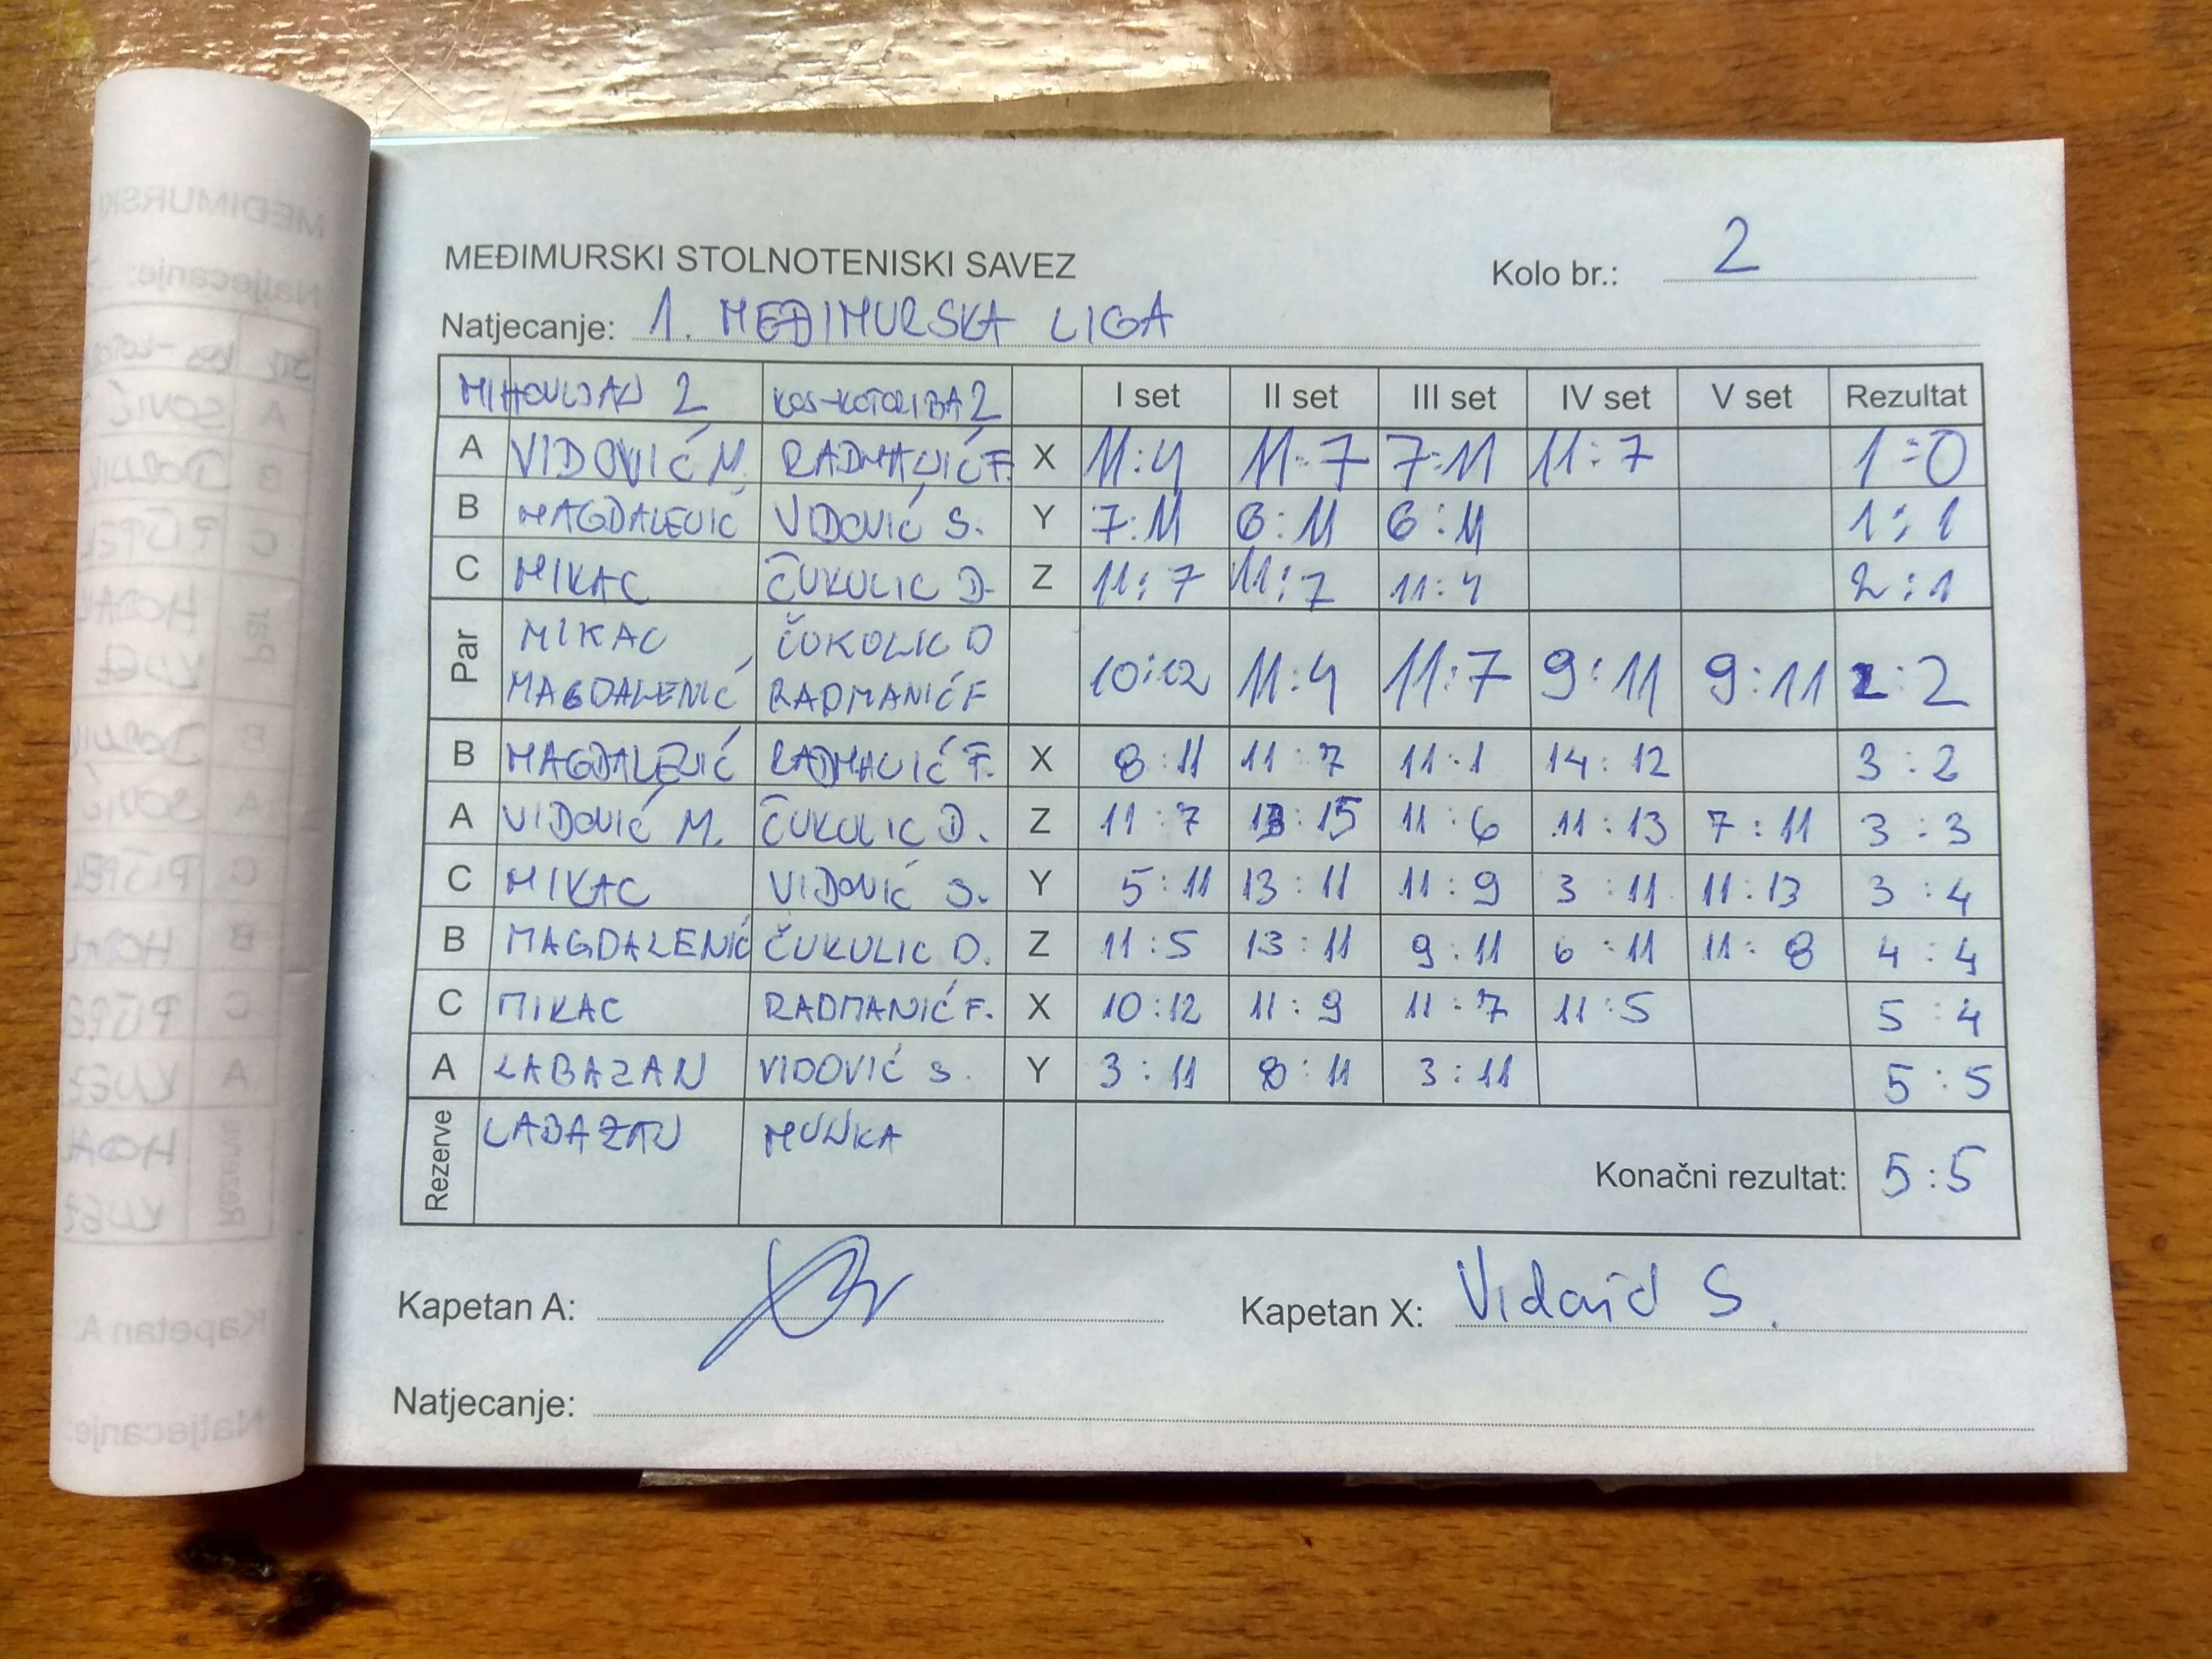 MEĐIMURSKI STOLNOTENISKI SAVEZ
Kolo br.: 2
Natjecanje: 1. MEĐIMURSKA LIGA
MIHOVLJAN 2 KOS-KOTORIBA 2 I set II set III set IV set V set Rezultat
A VIDOVIĆ M. RADMANIĆ F. X 11:4 11:7 7:11 11:7 1:0
B MAGDALENIĆ VIDOVIĆ S. Y 7:11 6:11 6:11 1:1
C MIKAC ČUKULIC D. Z 11:7 11:7 11:4 2:1
Par MIKAC ČUKOLIC D
MAGDALENIĆ RADMANIĆ F 10:12 11:4 11:7 9:11 9:11 2:2
B MAGDALENIĆ RADMANIĆ F. X 8:11 11:7 11:1 14:12 3:2
A VIDOVIĆ M. ČUKULIC D. Z 11:7 13:15 11:6 11:13 7:11 3:3
C MIKAC VIDOVIĆ S. Y 5:11 13:11 11:9 3:11 11:13 3:4
B MAGDALENIĆ ČUKULIC D. Z 11:5 13:11 9:11 6:11 11:8 4:4
C MIKAC RADMANIĆ F. X 10:12 11:9 11:7 11:5 5:4
A LABAZAN VIDOVIĆ S. Y 3:11 8:11 3:11 5:5
Rezerve LABAZAN MUNKA
Konačni rezultat: 5:5
Kapetan A:
Kapetan X: Vidović S.
Natjecanje: